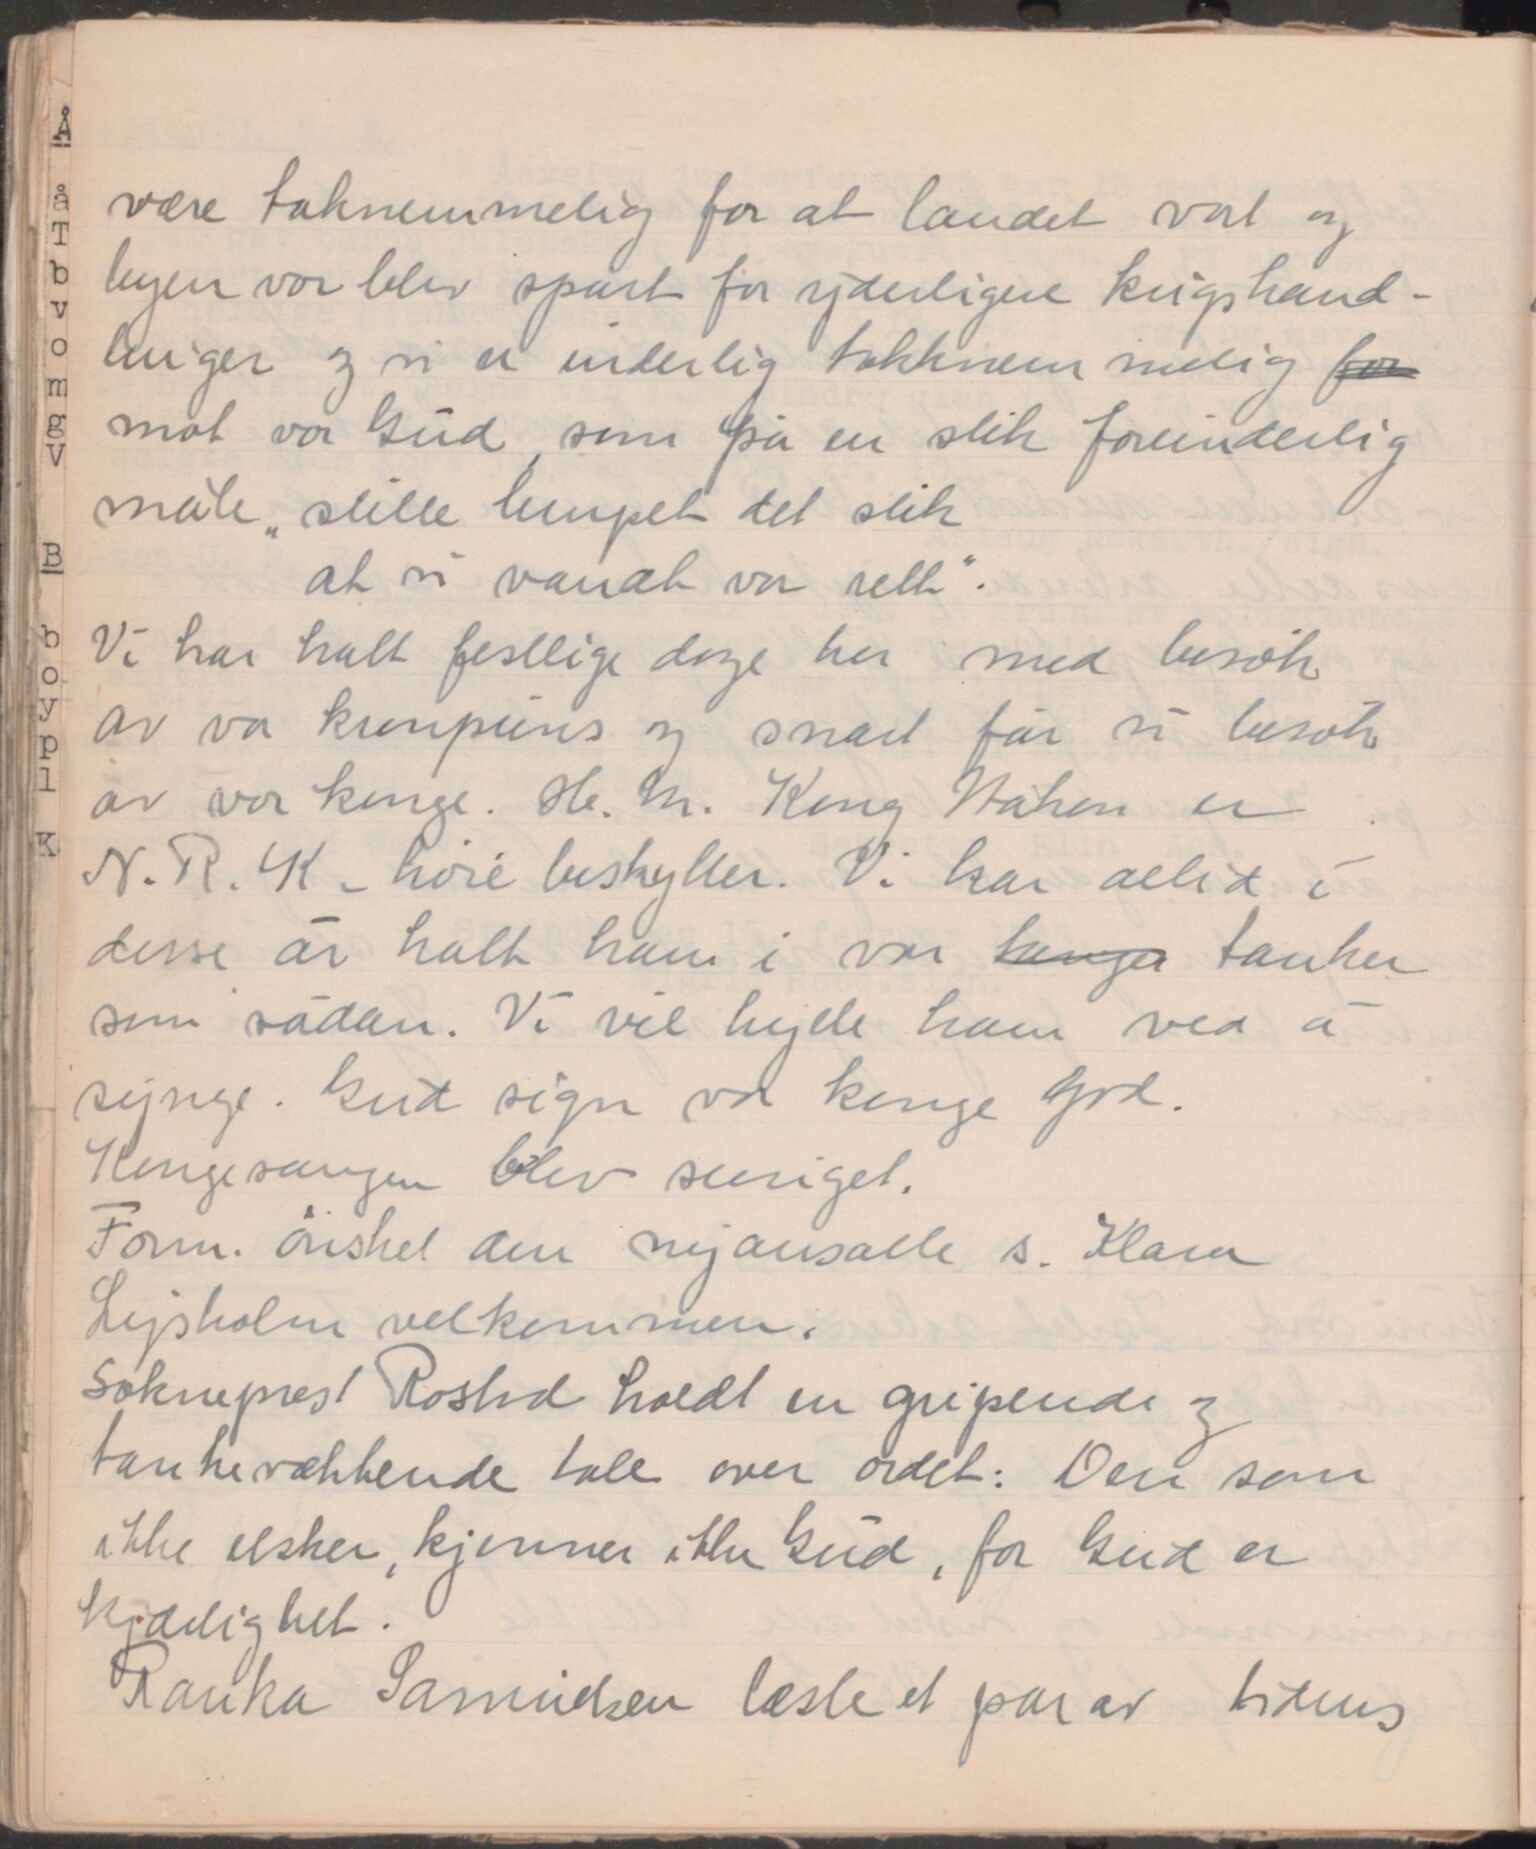 være taknemmelig for at landet vort og
byen vor blev spart for yderligere krigshand-
linger og vi er inderlig takknemmelig for
mot vor Gud, som på en slik forunderlig
måte „stille lempet det slik
at vi vandt vor rett“.
Vi har hatt festlige dage her med besök
av vor kronprins og snart får vi besök
av vor konge. H. M. Kong Håkon er
N.R.K-höie beskytter. Vi har altid i
desse år hatt ham i vor tanker
som sådan. Vi vil hylle ham ved å
synge. Gud sign vor konge god.
Kongesangen blev sunget.
Form. önsket den nyansatte s. Klara
Lysholm velkommen.
Sokneprest Rostad holdt en gripende og
tankevækkende tale over ordet: Den som
ikke elsker, kjenner ikke Gud, for Gud er
kjærlighet.
Ranka Samuelsen læste et par av tidens
Å
å
T
b
v
o
m
g
v
B
b
o
y
p
l
K